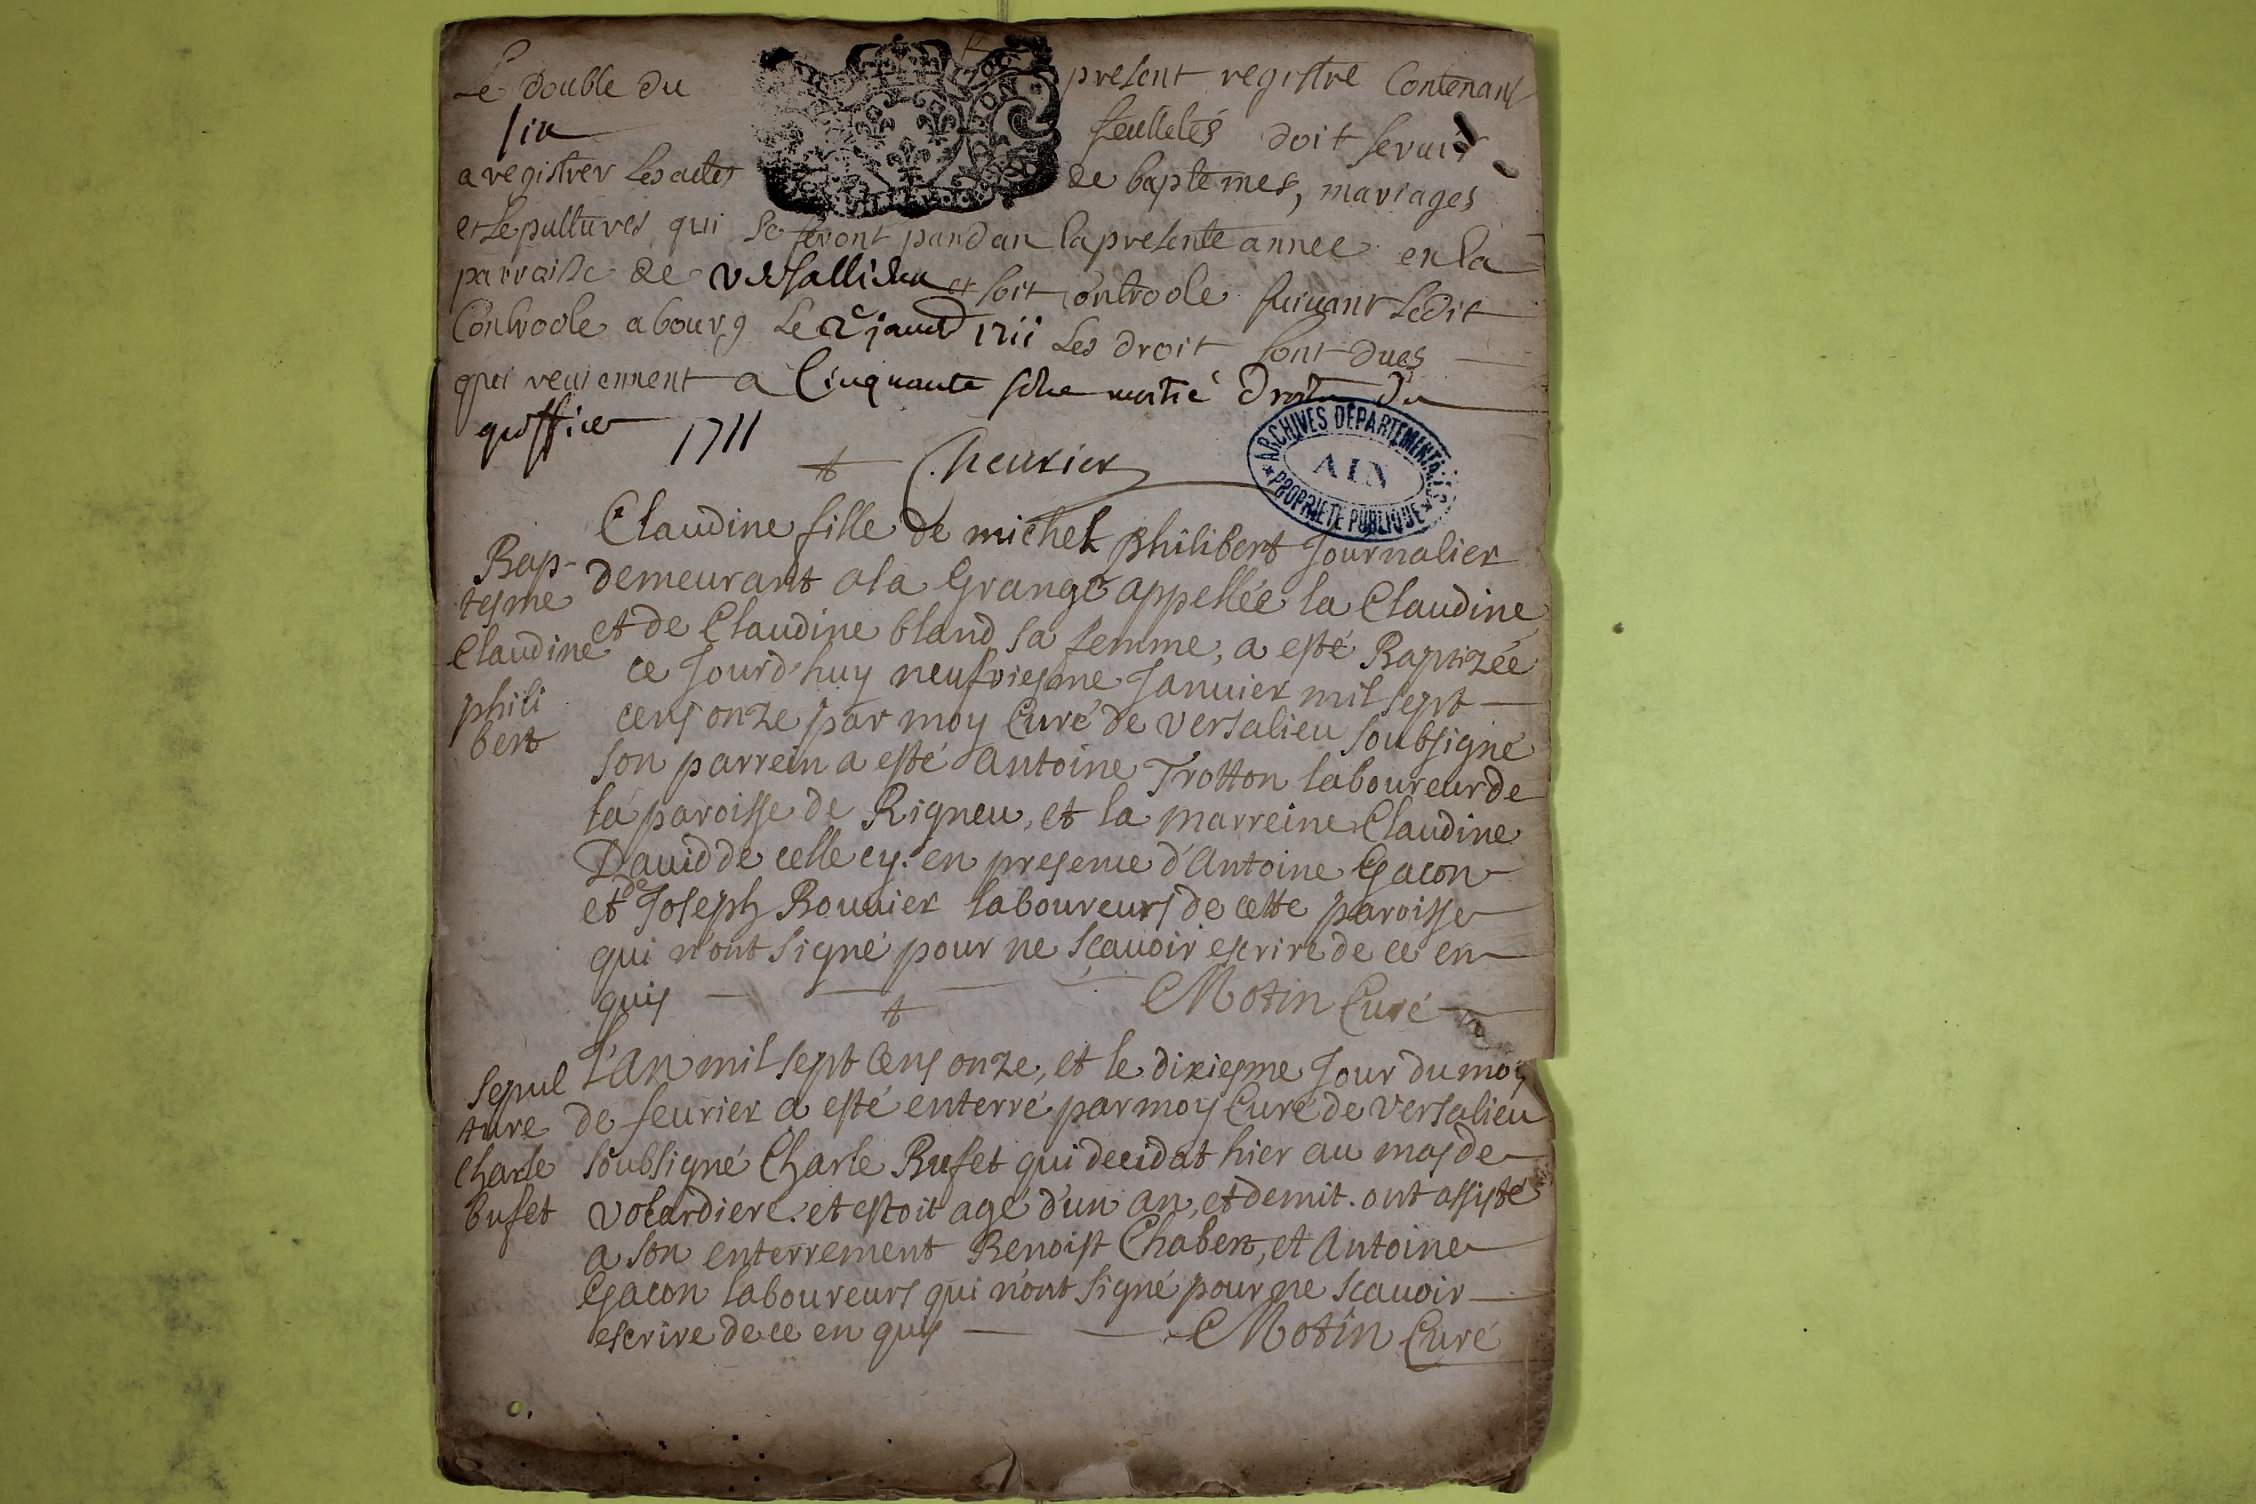 Le double du present registre Contenant
six feulletés doit servir
a registrer les actes de baptemes, mariages
et sepultures qui se feront pandan la presente annee en la
parroisse de et soit controole suivant ledit
Controole a bourg le 2e janv 1711 Les droit sont dues
qui reviennent a Cinquante moitié Droits du
1711
Cheurier
ARCHIVES DÉPARTEMENTALES
AIN
PROPRIETE PUBLIQUE
Bap-
tesme
Claudine
phili
bert
Claudine fille de michel philibert Journalier
demeurant a la Grange appellée la Claudine
et de Claudine bland sa femme, a esté Baptizée
ce Jourd'huy neufviesme Januier mil sept
cens onze par moy Curé de versalieu soubsigné
son parrein a esté Antoine Trotton laboureur de
la paroisse de Rigneu, et la marreine Claudine
Dauid de celle cy. en presence d'Antoine Gacon
et de Joseph Bouuier laboureurs de cette paroisse
qui n'ont signé pour ne sçauoir escrire de ce en
quis
Motin Curé
sepul
ture
Charle
bufet
L'An mil sept cens onze, et le dixiesme Jour du moys
de feurier a esté enterré par moy Curé de versalieu
soubsigné Charle Bufet qui decidat hier au mas de
volardiere. et estoit agé d'un an, et demit. ont assisté
a son enterrement Benoist Chabert, et Antoine
Gacon laboureurs qui n'ont signé pour ne scauoir
escrire de ce en quis
Motin Curé